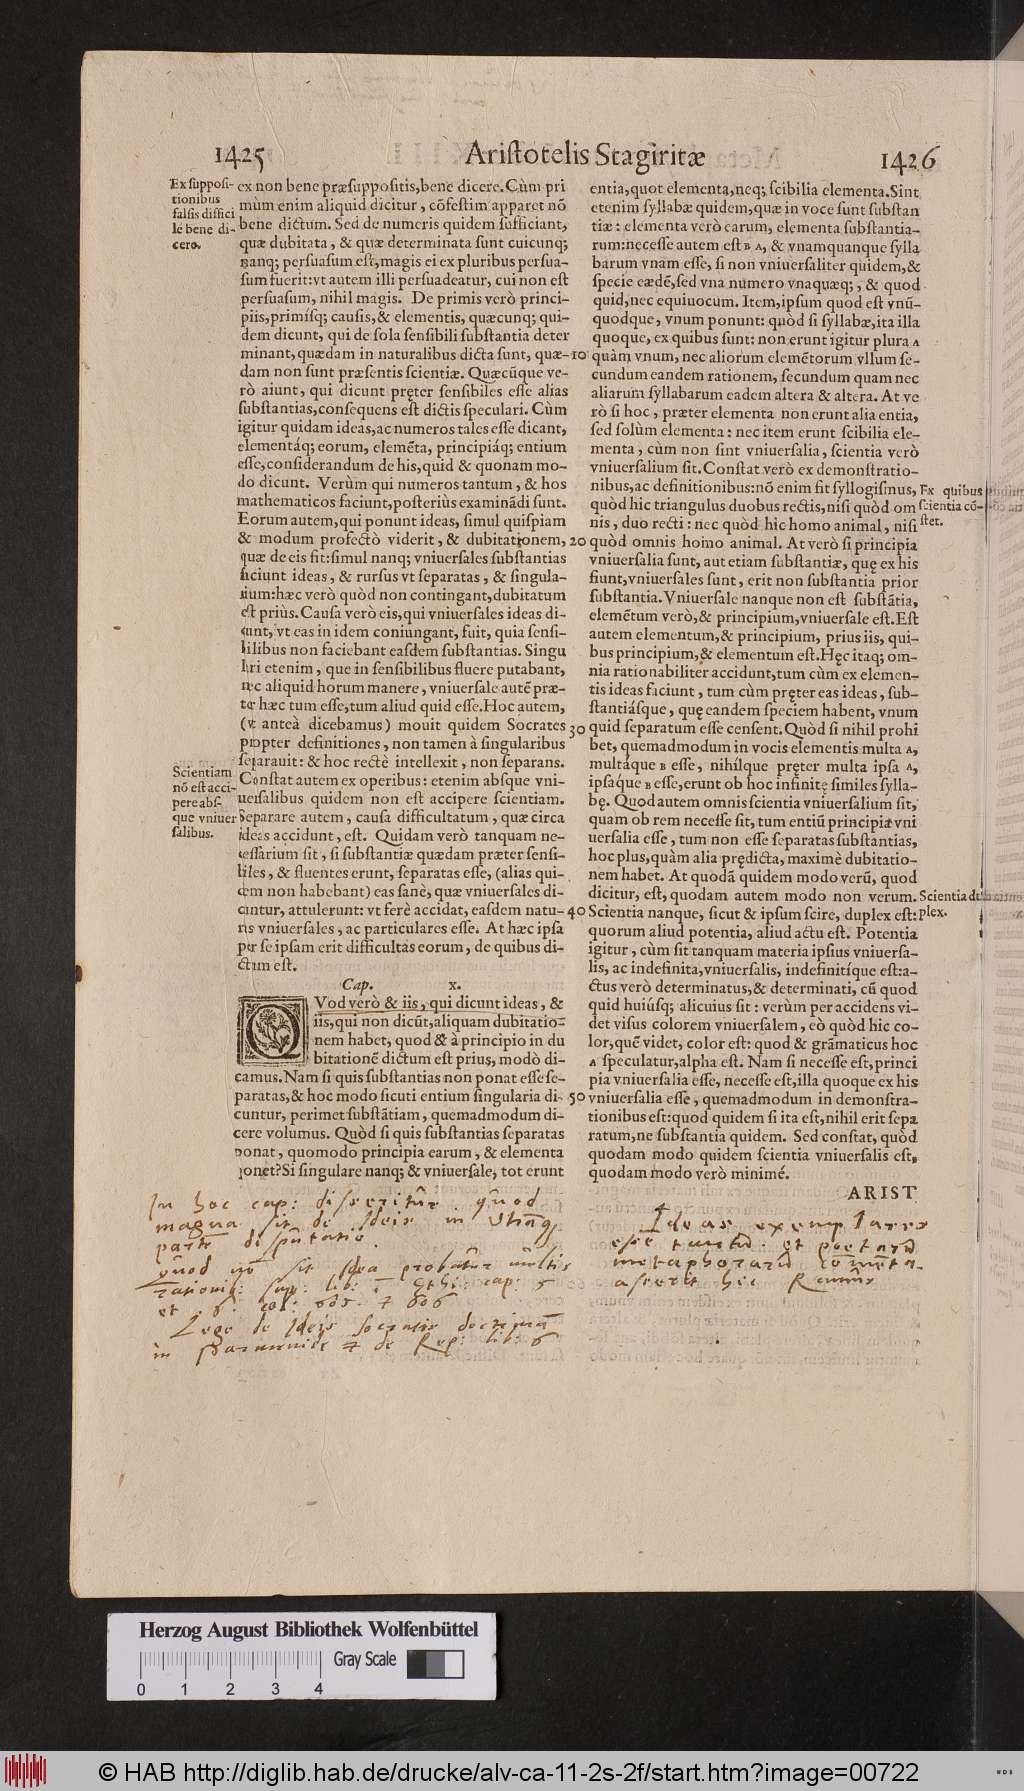 1425
Aristotelis Stagiritæ
1426
Ex supposi-
tionibus
falsis diffici
lè bene di-
cere.
ex non bene præsuppositis, bene dicere. Cùm pri
mùm enim aliquid dicitur, cõfestim apparet nõ
bene dictum. Sed de numeris quidem sufficiant,
quæ dubitata, & quæ determinata sunt cuicunq;
nanq; persuasum est, magis ei ex pluribus persua-
sum fuerit: vt autem illi persuadeatur, cui non est
persuasum, nihil magis. De primis verò princi-
piis, primisq; causis, & elementis, quæcunq; qui-
dem dicunt, qui de sola sensibili substantia deter
minant, quædam in naturalibus dicta sunt, quæ-
dam non sunt præsentis scientiæ. Quæcũque ve-
rò aiunt, qui dicunt pręter sensibiles esse alias
substantias, consequens est dictis speculari. Cùm
igitur quidam ideas, ac numeros tales esse dicant,
elementáq; eorum, elemẽta, principiáq; entium
esse, considerandum de his, quid & quonam mo-
do dicunt. Verùm qui numeros tantum, & hos
mathematicos faciunt, posteriùs examinãdi sunt.
Eorum autem, qui ponunt ideas, simul quispiam
& modum profectò viderit, & dubitationem,
quæ de eis fit: simul nanq; vniuersales substantias
faciunt ideas, & rursus vt separatas, & singula-
rium: hæc verò quòd non contingant, dubitatum
est priùs. Causa verò eis, qui vniuersales ideas di-
cunt, vt eas in idem coniungant, fuit, quia sensi-
bilibus non faciebant easdem substantias. Singu
lari etenim, que in sensibilibus fluere putabant,
nec aliquid horum manere, vniuersale autẽ præ-
ter hæc tum esse, tum aliud quid esse. Hoc autem,
(vt anteà dicebamus) mouit quidem Socrates
propter definitiones, non tamen à singularibus
separauit: & hoc rectè intellexit, non separans.
Constat autem ex operibus: etenim absque vni-
uersalibus quidem non est accipere scientiam.
Separare autem, causa difficultatum, quæ circa
ideas accidunt, est. Quidam verò tanquam ne-
cessarium sit, si substantiæ quædam præter sensi-
biles, & fluentes erunt, separatas esse, (alias qui-
dem non habebant) eas sanè, quæ vniuersales di-
cuntur, attulerunt: vt ferè accidat, easdem natu-
ras vniuersales, ac particulares esse. At hæc ipsa
per se ipsam erit difficultas eorum, de quibus di-
ctum est.
Scientiam
nõ est acci-
pere abs-
que vniuer
salibus.
Cap. x.
QVod verò & iis, qui dicunt ideas, &
iis, qui non dicũt, aliquam dubitatio-
nem habet, quod & à principio in du
bitationẽ dictum est prius, modò di-
camus. Nam si quis substantias non ponat esse se-
paratas, & hoc modo sicuti entium singularia di-
cuntur, perimet substãtiam, quemadmodum di-
cere volumus. Quòd si quis substantias separatas
ponat, quomodo principia earum, & elementa
ponet? Si singulare nanq; & vniuersale, tot erunt
10
20
30
40
50
entia, quot elementa, neq; scibilia elementa. Sint
etenim syllabæ quidem, quæ in voce sunt substan
tiæ: elementa verò earum, elementa substantia-
rum: necesse autem est B A, & vnamquanque sylla
barum vnam esse, si non vniuersaliter quidem, &
specie eædẽ, sed vna numero vnaquæq;, & quod
quid, nec equiuocum. Item, ipsum quod est vnũ-
quodque, vnum ponunt: quòd si syllabæ, ita illa
quoque, ex quibus sunt: non erunt igitur plura A
quàm vnum, nec aliorum elemẽtorum vllum se-
cundum eandem rationem, secundum quam nec
aliarum syllabarum eadem altera & altera. At ve
rò si hoc, præter elementa non erunt alia entia,
sed solùm elementa: nec item erunt scibilia ele-
menta, cùm non sint vniuersalia, scientia verò
vniuersalium sit. Constat verò ex demonstratio-
nibus, ac definitionibus: nõ enim fit syllogismus,
quòd hic triangulus duobus rectis, nisi quòd om
nis, duo recti: nec quòd hic homo animal, nisi
quòd omnis homo animal. At verò si principia
vniuersalia sunt, aut etiam substantiæ, quę ex his
fiunt, vniuersales sunt, erit non substantia prior
substantia. Vniuersale nanque non est substãtia,
elemẽtum verò, & principium, vniuersale est. Est
autem elementum, & principium, prius iis, qui-
bus principium, & elementum est. Hęc itaq; om-
nia rationabiliter accidunt, tum cùm ex elemen-
tis ideas faciunt, tum cùm pręter eas ideas, sub-
stantiásque, quę eandem speciem habent, vnum
quid separatum esse censent. Quòd si nihil prohi
bet, quemadmodum in vocis elementis multa A,
multáque B esse, nihílque pręter multa ipsa A,
ipsáque B esse, erunt ob hoc infinitę similes sylla-
bę. Quod autem omnis scientia vniuersalium sit,
quam ob rem necesse sit, tum entiũ principia vni
uersalia esse, tum non esse separatas substantias,
hoc plus, quàm alia prędicta, maximè dubitatio-
nem habet. At quodã quidem modo verũ, quod
dicitur, est, quodam autem modo non verum.
Scientia nanque, sicut & ipsum scire, duplex est:
quorum aliud potentia, aliud actu est. Potentia
igitur, cùm sit tanquam materia ipsius vniuersa-
lis, ac indefinita, vniuersalis, indefinitíque est: a-
ctus verò determinatus, & determinati, cũ quod
quid huiúsq; alicuius sit: verùm per accidens vi-
det visus colorem vniuersalem, eò quòd hic co-
lor, quẽ videt, color est: quod & grãmaticus hoc
A speculatur, alpha est. Nam si necesse est, princi
pia vniuersalia esse, necesse est, illa quoque ex his
vniuersalia esse, quemadmodum in demonstra-
tionibus est: quod quidem si ita est, nihil erit sepa
ratum, ne substantia quidem. Sed constat, quòd
quodam modo quidem scientia vniuersalis est,
quodam modo verò minimé.
Ex quibus
scientia cõ-
stet.
Scientia du
plex.
ARIST
In hoc cap: disseritur quod
magna sit de Ideis in utramq
parte disputatio
quod non sit Idea probatur multis
rationib: sup: lib: I Ethi: cap: 6
et 6: col: 605. & 606
Lege de Ideis socratis doctrinam
in Parmenide & de Rep: lib: 6
Ideas exemplares
esse tantum et poetarum
metaphorarum commenta
aserit hic Ramus
Herzog August Bibliothek Wolfenbüttel
Gray Scale
0 1 2 3 4
© HAB http://diglib.hab.de/drucke/alv-ca-11-2s-2f/start.htm?image=00722